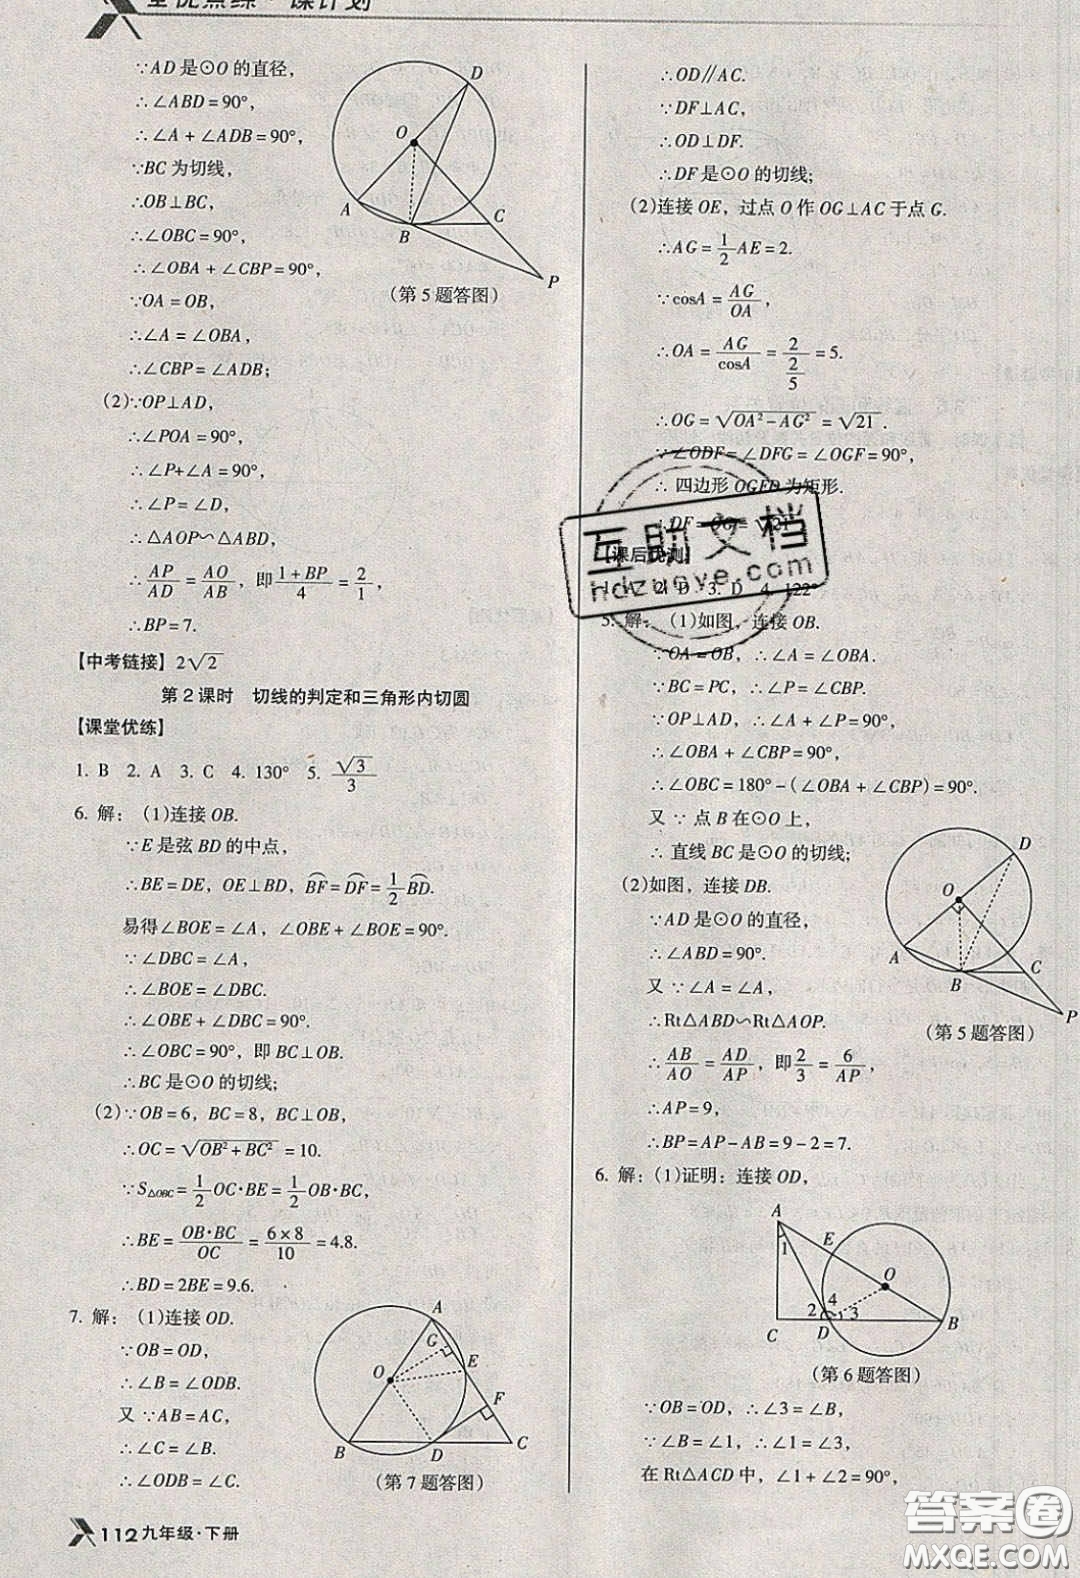 全优点练·课计划
∵AD是⊙O的直径,
∴∠ABD=90°,
∴∠A+∠ADB=90°,
∵BC为切线,
∴OB⊥BC,
∴∠OBC=90°,
∴∠OBA+∠CBP=90°,
∵OA=OB,
∴∠A=∠OBA,
∴∠CBP=∠ADB;
D
O
A
B
C
P
(第5题答图)
(2)∵OP⊥AD,
∴∠POA=90°,
∴∠P+∠A=90°,
∴∠P=∠D,
∴△AOP∽△ABD,
∴AP/AD=AO/AB,即(1+BP)/4=2/1,
∴BP=7.
【中考链接】2√2
第2课时 切线的判定和三角形内切圆
【课堂优练】
1. B 2. A 3. C 4. 130° 5. √3/3
6. 解:(1)连接OB.
∵E是弦BD的中点,
∴BE=DE,OE⊥BD,BF⌒=DF⌒=1/2BD⌒.
易得∠BOE=∠A,∠OBE+∠BOE=90°.
∵∠DBC=∠A,
∴∠BOE=∠DBC.
∴∠OBE+∠DBC=90°.
∴∠OBC=90°,即BC⊥OB.
∴BC是⊙O的切线;
(2)∵OB=6,BC=8,BC⊥OB,
∴OC=√(OB²+BC²)=10.
∵S△OBC=1/2OC·BE=1/2OB·BC,
∴BE=OB·BC/OC=6×8/10=4.8.
∴BD=2BE=9.6.
7. 解:(1)连接OD.
∵OB=OD,
∴∠B=∠ODB.
又∵AB=AC,
∴∠C=∠B.
∴∠ODB=∠C.
A
G
E
O
F
B
D
C
(第7题答图)
112九年级·下册
∴OD∥AC.
∵DF⊥AC,
∴OD⊥DF.
∴DF是⊙O的切线;
(2)连接OE,过点O作OG⊥AC于点G.
∴AG=1/2AE=2.
∵cosA=AG/OA,
∴OA=AG/cosA=2/(2/5)=5.
∴OG=√(OA²-AG²)=√21.
∵∠ODF=∠DFG=∠OGF=90°,
∴四边形OGFD为矩形.
∴DF=OG=√21.
【课后优测】
1. A 2. D 3. D 4. 122°
5. 解:(1)如图,连接OB.
∵OA=OB,∴∠A=∠OBA.
∵BC=PC,∴∠P=∠CBP.
∵OP⊥AD,∴∠A+∠P=90°.
∴∠OBA+∠CBP=90°.
∴∠OBC=180°-(∠OBA+∠CBP)=90°.
又∵点B在⊙O上,
∴直线BC是⊙O的切线;
(2)如图,连接DB.
∵AD是⊙O的直径,
∴∠ABD=90°.
又∵∠A=∠A,
∴Rt△ABD∽Rt△AOP.
∴AB/AO=AD/AP,即2/3=6/AP,
∴AP=9,
∴BP=AP-AB=9-2=7.
D
O
A
B
C
P
(第5题答图)
6. 解:(1)证明:连接OD,
A
1
E
O
4
2
3
C
D
B
(第6题答图)
∵OB=OD,∴∠3=∠B,
∵∠B=∠1,∴∠1=∠3,
在Rt△ACD中,∠1+∠2=90°,
互助文档
hdzuoye.com
答案圈
MXQE.COM